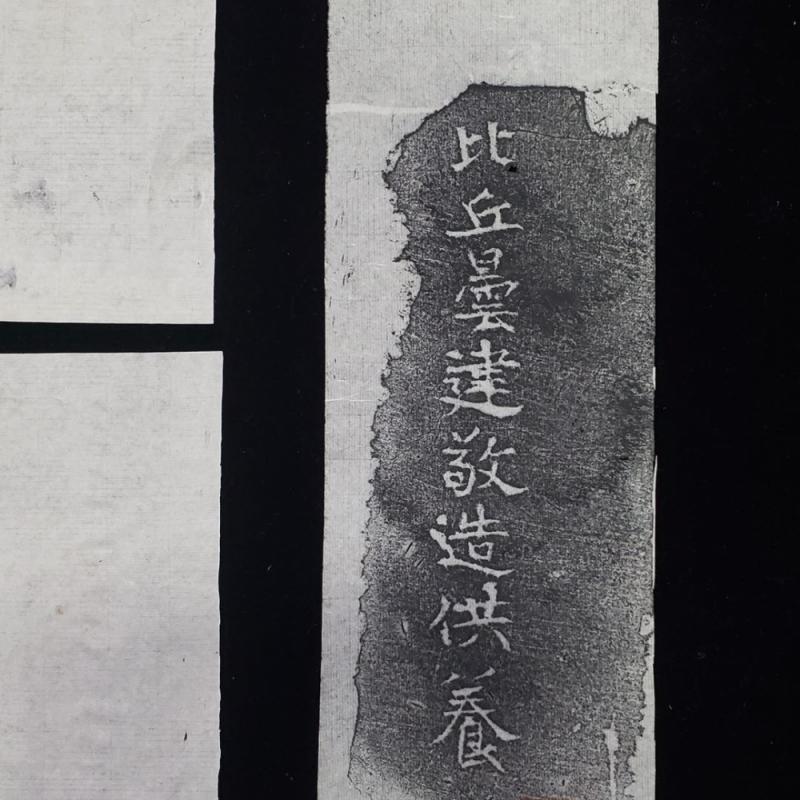 比丘曇建敬造供養